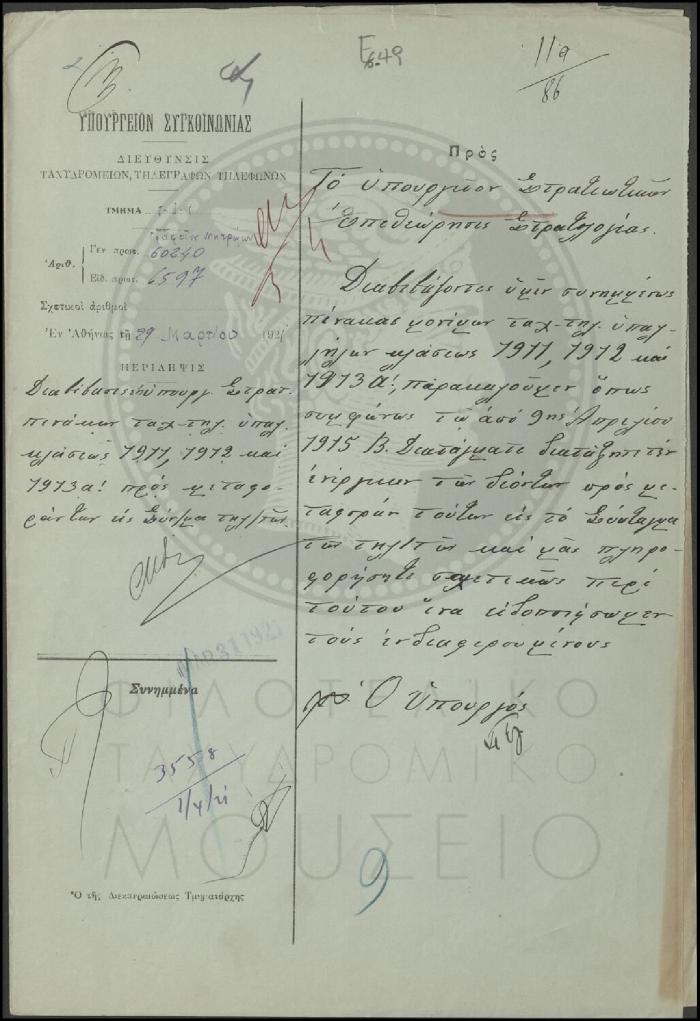 Ε 649
11α
86
ΥΠΟΥΡΓΕΙΟΝ ΣΥΓΚΟΙΝΩΝΙΑΣ
ΔΙΕΥΘΥΝΣΙΣ
ΤΑΧΥΔΡΟΜΕΙΩΝ, ΤΗΛΕΓΡΑΦΩΝ ΤΗΛΕΦΩΝΩΝ
ΤΜΗΜΑ
Γραφεῖον Μητρώων
Ἀριθ.
Γεν πρωτ. 60240
Εἰδ. πρωτ. 6597
Σχετικοὶ ἀριθμοὶ
Ἐν Ἀθήναις τῇ 29 Μαρτίου 1921
ΠΕΡΙΛΗΨΙΣ
Διαβιβάσεις ὑπουργ. Στρατ.
πινάκων ταχ-τηλ. ὑπαλ.
κλάσεως 1911, 1912 καὶ
1913α! πρὸς μεταφο-
ρὰν των εἰς Σύν/μα τηλ/τῶν.
ΜΑΡ 31 1921
Συνημμένα
3558
1/4/21
Ὁ τῆς Διεκπεραιώσεως Τμηματάρχης
Πρὸς
Τὸ ὑπουργεῖον Στρατιωτικῶν
Ἐπιθεώρησις Στρατολογίας.
Διαβιβάζοντες ὑμῖν συνημμένως
πίνακας μονίμων ταχ-τηλ. ὑπαλ-
λήλων κλάσεως 1911, 1912 καὶ
1913α!, παρακαλοῦμεν ὅπως
συμφώνως τῷ ἀπὸ 9ης Ἀπριλίου
1915 Β. Διατάγματι διατάξητε τὴν
ἐνέργειαν τῶν δεόντων πρὸς με-
ταφορὰν τούτων εἰς τὸ Σύνταγμα
τῶν τηλ/τῶν καὶ μᾶς πληρο-
φορήσητε σχετικῶς περὶ
τούτου ἵνα εἰδοποιήσωμεν
τοὺς ἐνδιαφερομένους
Ὁ Ὑπουργός
9
ΦΙΛΟΤΕΛΙΚΟ
ΤΑΧΥΔΡΟΜΙΚΟ
ΜΟΥΣΕΙΟ